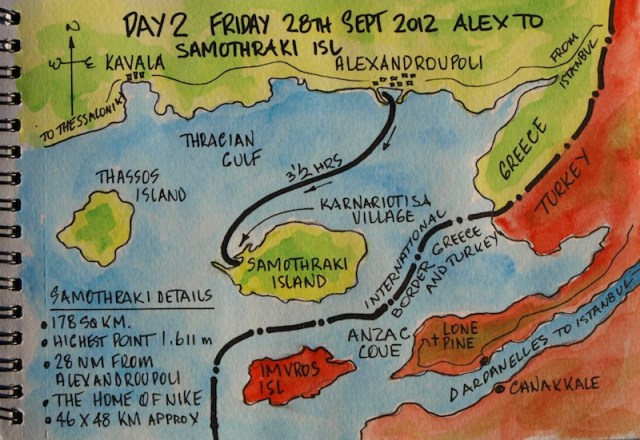 DAY 2 FRIDAY 28TH SEPT 2012 ALEX TO
SAMOTHRAKI ISL
N
W E
KAVALA
ALEXANDROUPOLI
FROM
ISTANBUL
TO THESSALONIKI
THRACIAN
GULF
GREECE
TURKEY
3½ HRS
THASSOS
ISLAND
KARNARIOTISA
VILLAGE
INTERNATIONAL
BORDER GREECE
AND TURKEY
SAMOTHRAKI
ISLAND
SAMOTHRAKI DETAILS
• 178 SQ KM.
• HIGHEST POINT 1.611 m
• 28 NM FROM
ALEXANDROUPOLI
• THE HOME OF NIKE
• 46 X 48 KM APPROX
ANZAC
COVE
LONE
PINE
IMVROS
ISL
DARDANELLES TO ISTANBUL
CANAKKALE